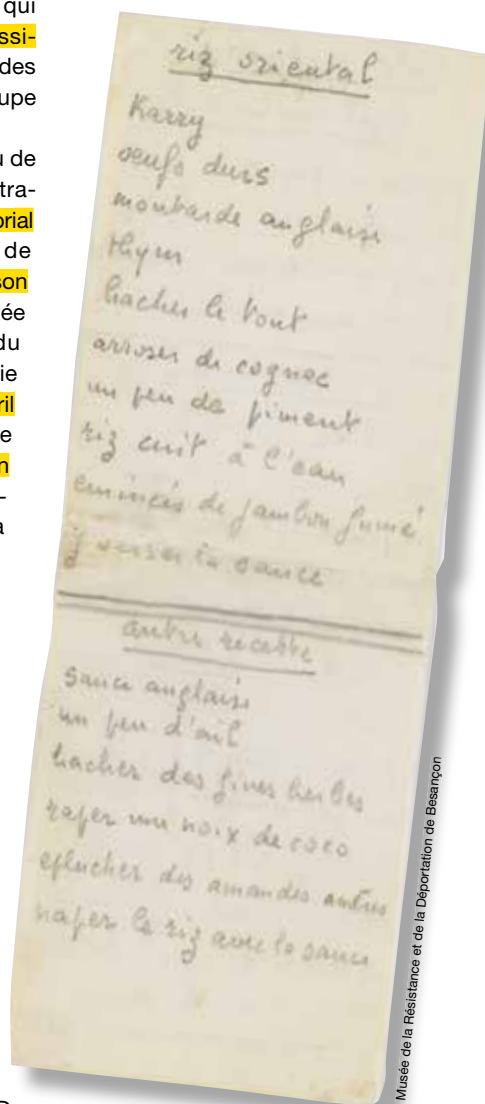 qui
ssi-
des
upe
u de
tra-
orial
de
son
ée
du
ie
ril
e
n
-
a
riz oriental
Karry
oeufs durs
moutarde anglaise
thym
hacher le tout
arroser de cognac
un peu de piment
riz cuit à l'eau
emincés de jambon fumé
verser la sauce
autre recette
sauce anglaise
un peu d'ail
hacher des fines herbes
raper une noix de coco
eplucher des amandes autres
naper le riz avec la sauce
Musée de la Résistance et de la Déportation de Besançon